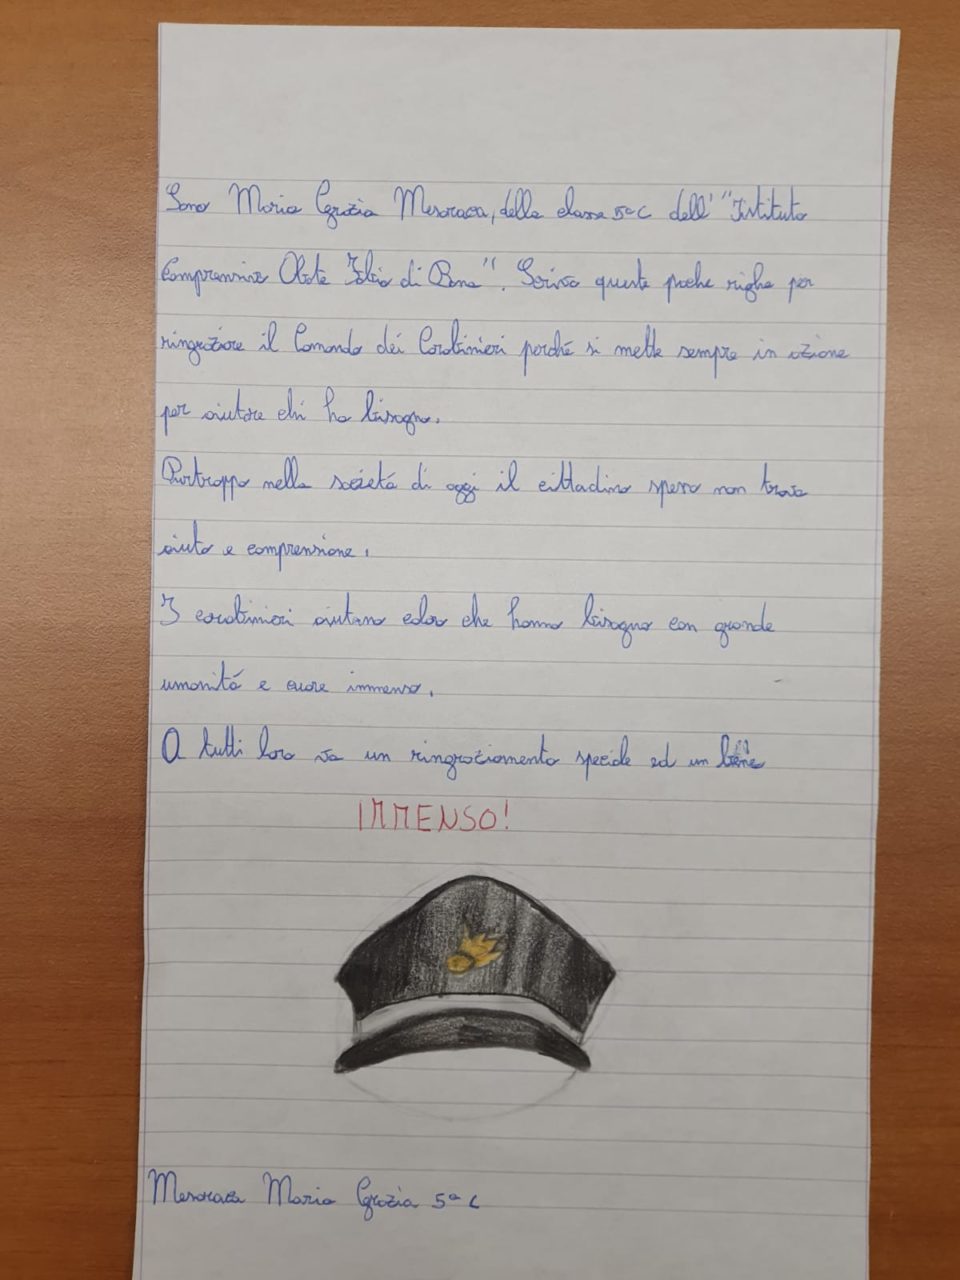 Sono Maria Grazia Mesoraca, della classe 5ª C dell' "Istituto
Comprensivo Abate Fabio di Bona". Scrivo queste poche righe per
ringraziare il Comando dei Carabinieri perché si mette sempre in azione
per aiutare chi ha bisogno.
Purtroppo nella società di oggi il cittadino spesso non trova
aiuto e comprensione.
I carabinieri aiutano color che hanno bisogno con grande
umanità e cuore immenso.
A tutti loro va un ringraziamento speciale ed un bene
IMMENSO!
Mesoraca Maria Grazia 5ª C